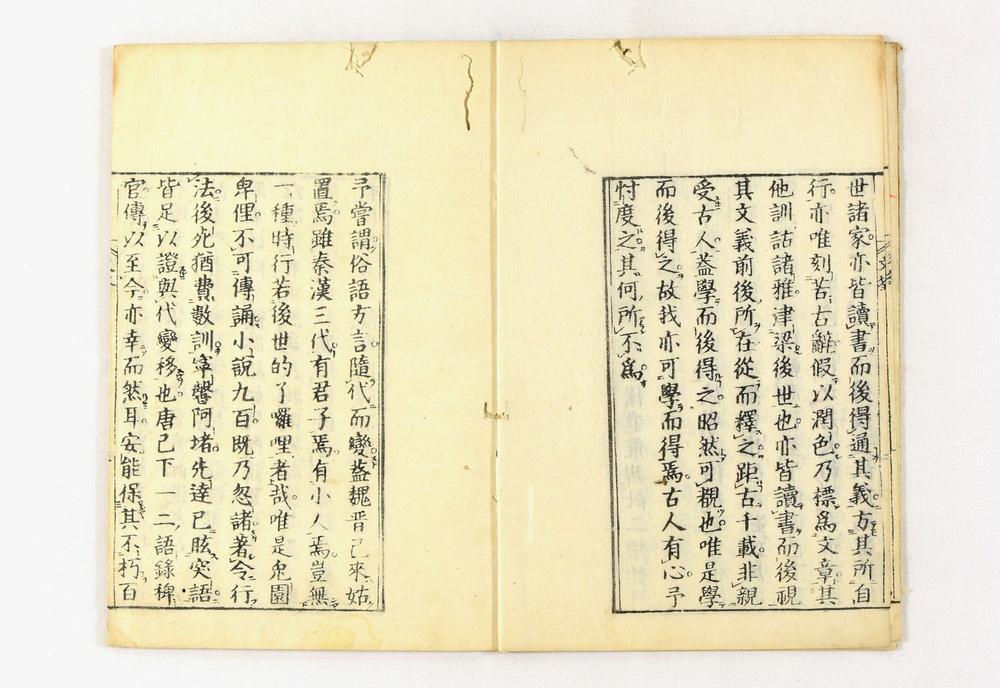 世諸家亦皆讀書而後得通其義方其所自
行亦唯刻苦古辭假以潤色乃標爲文章其
他訓詁諸雅津梁後世也亦皆讀書而後視
其文義前後所在從而釋之距古千載非親
受古人蓋學而後得之昭然可覩也唯是學
而後得之故我亦可學而得焉古人有心予
忖度之其何所不爲
予嘗謂俗語方言隨代而變蓋魏晋已來姑
置焉雖秦漢三代有君子焉有小人焉豈無
一種時行若後世的了囉哩者哉唯是兎園
卑俚不可傳誦小說九百既乃忽諸著令行
法後死猶費數訓寧馨阿堵先達已眩突語
皆足以證與代變移也唐已下一二語錄稗
官傳以至今亦幸而然耳安能保其不朽百